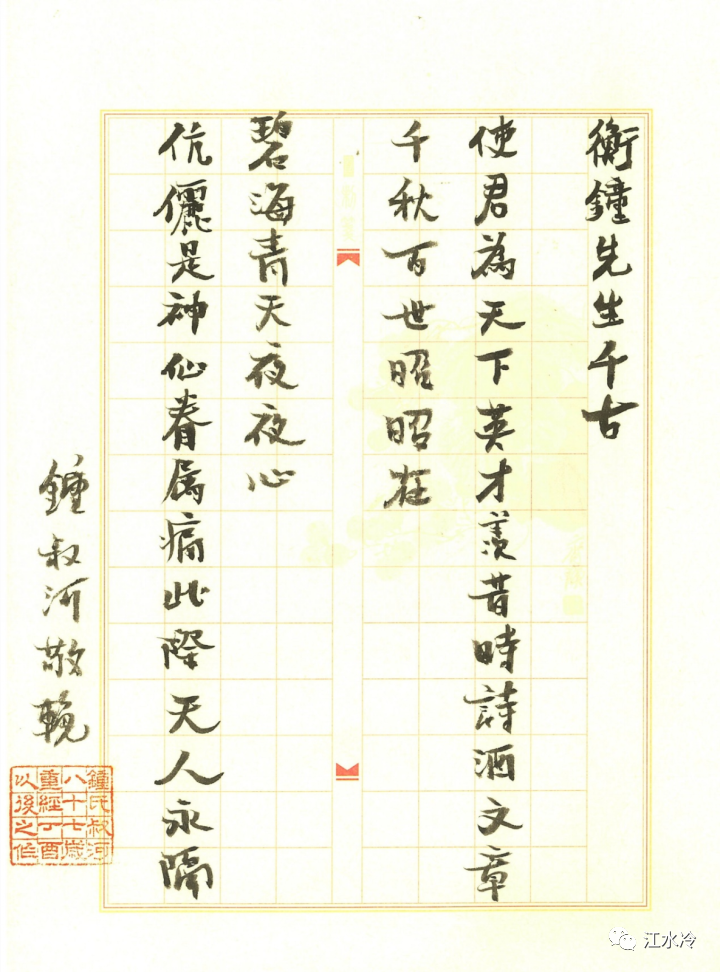 衡鐘先生千古
使君為天下英才羨昔時詩酒文章
千秋百世昭昭在
碧海青天夜夜心
伉儷是神仙眷属痛此際天人永隔
鍾叔河敬輓
鍾氏叔河
八十七歲
重經丁酉
以後之作
江水冷